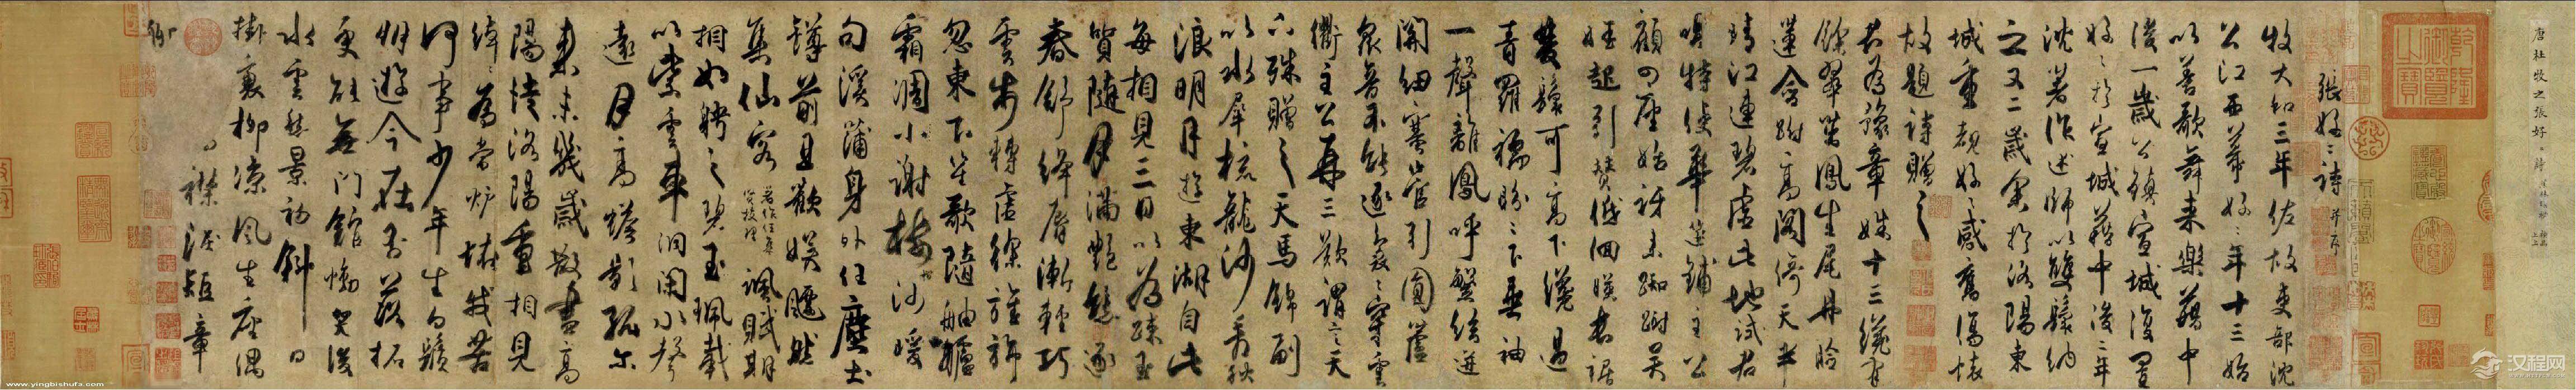 唐杜牧之張好好詩
張好好詩 并序
牧大和三年佐故吏部沈
公江西幕好好年十三始
以善歌舞来樂籍中
後一歲公鎮宣城復置
好好於宣城籍中後二年
沈著作述師以雙鬟納
之又二歲余於洛陽東
城重覩好好感舊傷懷
故題詩贈之
君為豫章姝十三纔有
餘翠茁鳳生尾丹臉
蓮含跗高閣倚天半
晴江連碧虛此地試君
唱特使華筵鋪主公
顧四座始訝来踟蹰吴
娃起引贊低佪暎長裾
雙鬟可高下纔過
青羅襦盼盼下垂袖
一聲離鳳呼繁絃迸
關紐塞管引圓蘆
衆音不能逐裊裊穿雲
衢主公再三歎謂言天
下殊贈之天馬錦副
以水犀梳龍沙看秋
浪明月遊東湖自此
每相見三日以為疎玉
質隨月滿艷態逐
春舒絳唇漸輕巧
雲步轉虛徐旌旆
忽東下笙歌隨舳艫
霜凋小謝樹沙暖
句溪蒲身外任塵土
罇前且歡娛飄然
集仙客 著作任集賢校理 諷賦期
相如聘之碧玉珮載
以紫雲車洞閉水聲
遠月高蟾影孤尒
来未幾歲散盡高
陽徒洛陽重相見
綽綽為當爐怪我苦
何事少年生白鬚
朋遊今在否落拓
更能無門館慟哭後
水雲愁景初斜日
掛衰柳凉風生座隅
襟淚短章
聊
乾隆御覽之寶
汉程网
www.yingbishufa.com